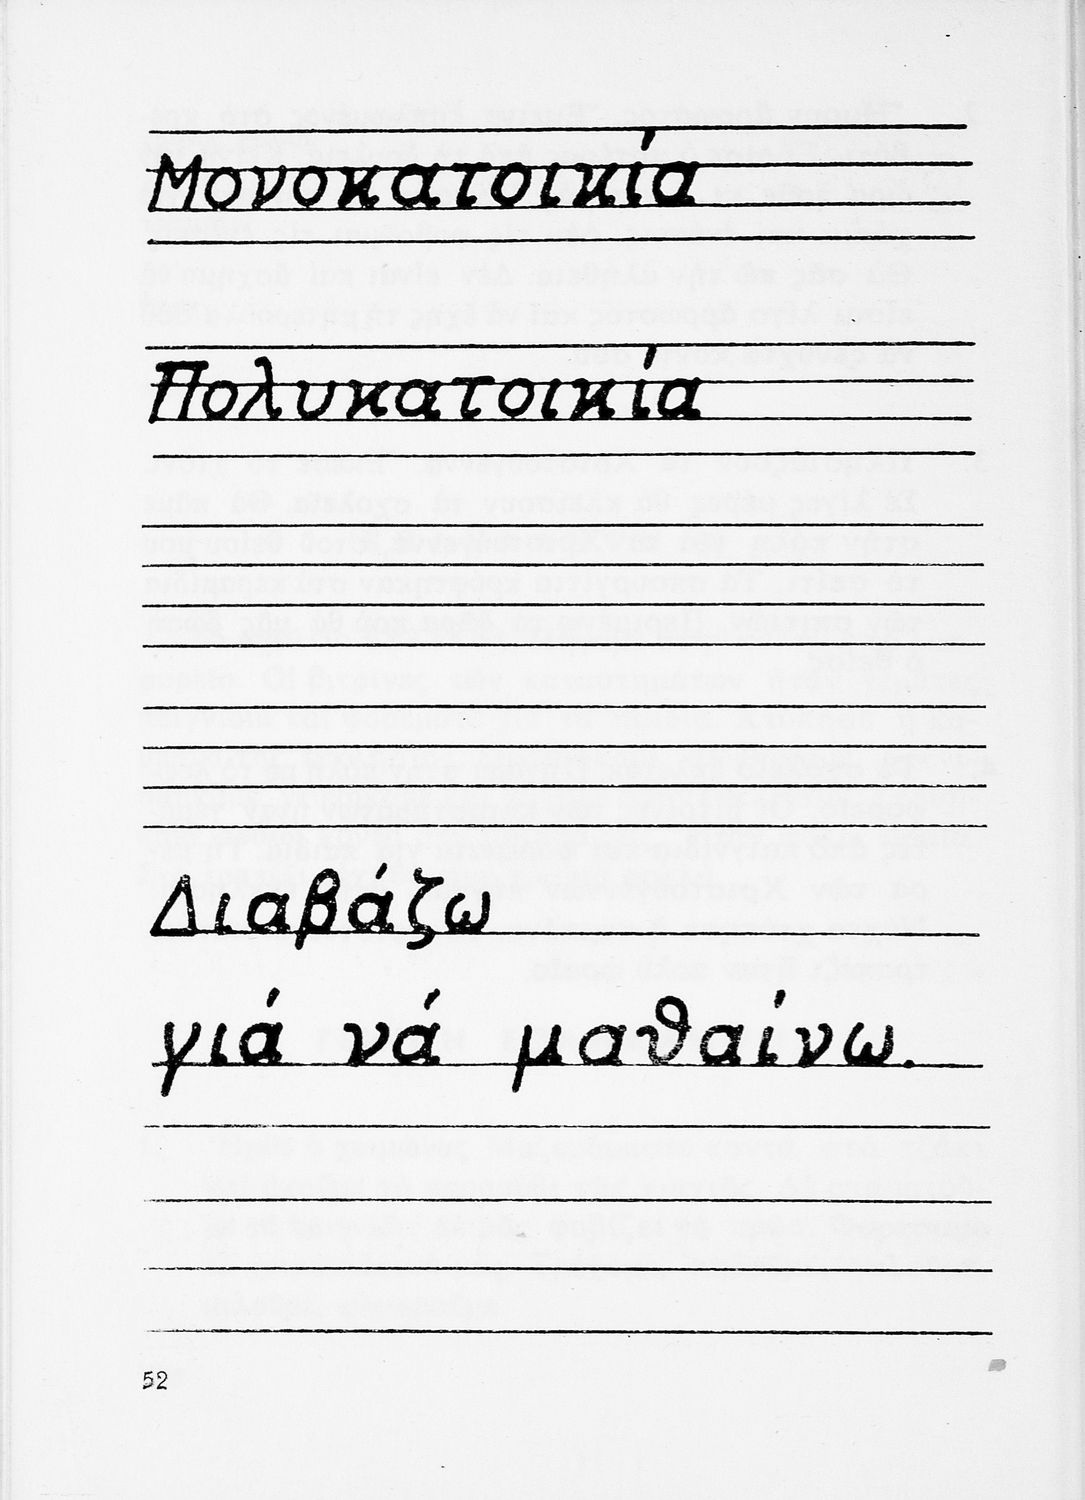 Μονοκατοικία
Πολυκατοικία
Διαβάζω
γιά νά μαθαίνω.
52